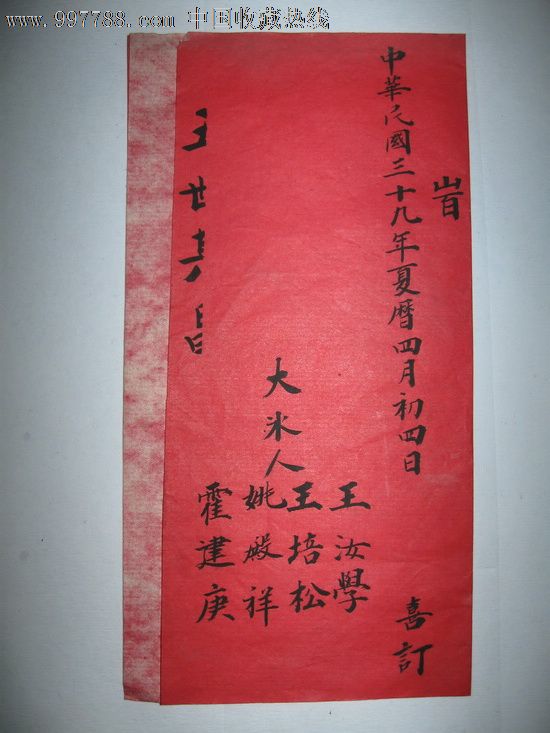 www.997788.com 中国收藏热线
旹
中華民國三十九年夏曆四月初四日
喜訂
大氷人
王汝學
王培松
姚殿祥
霍建庚